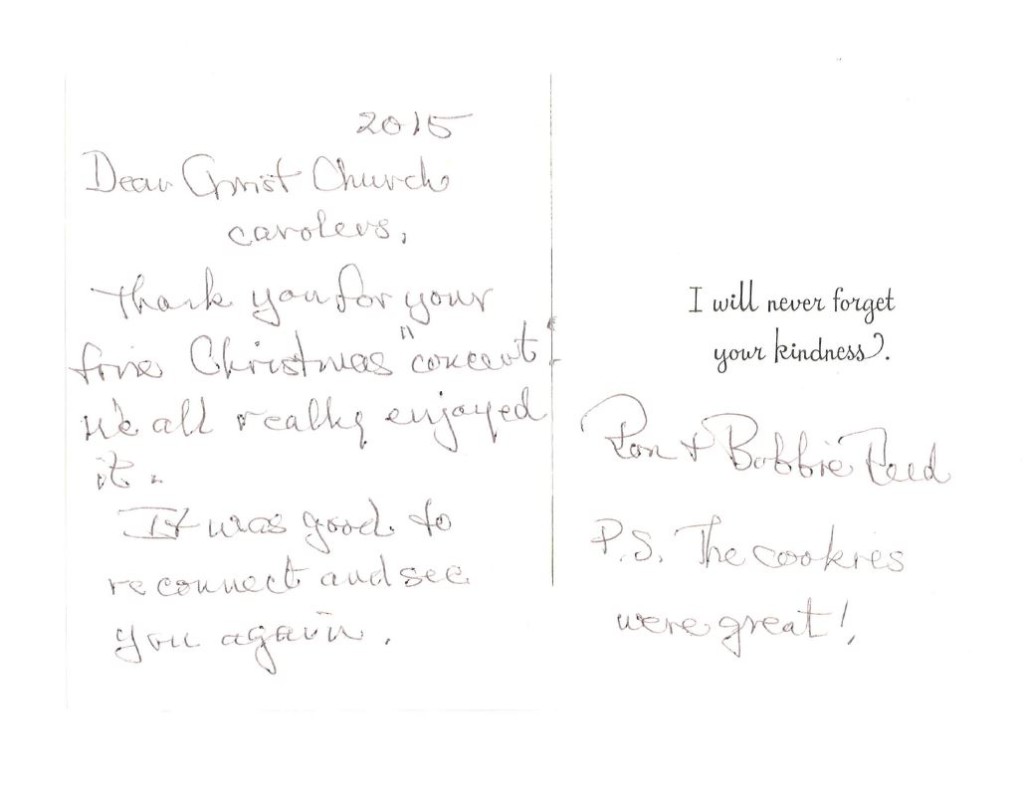 2015
Dear Christ Church
carolers,
Thank you for your
fine Christmas "concert".
We all really enjoyed
it.
It was good to
reconnect and see
you again.
I will never forget
your kindness.
Ron + Bobbie Reed
P.S. The cookies
were great!